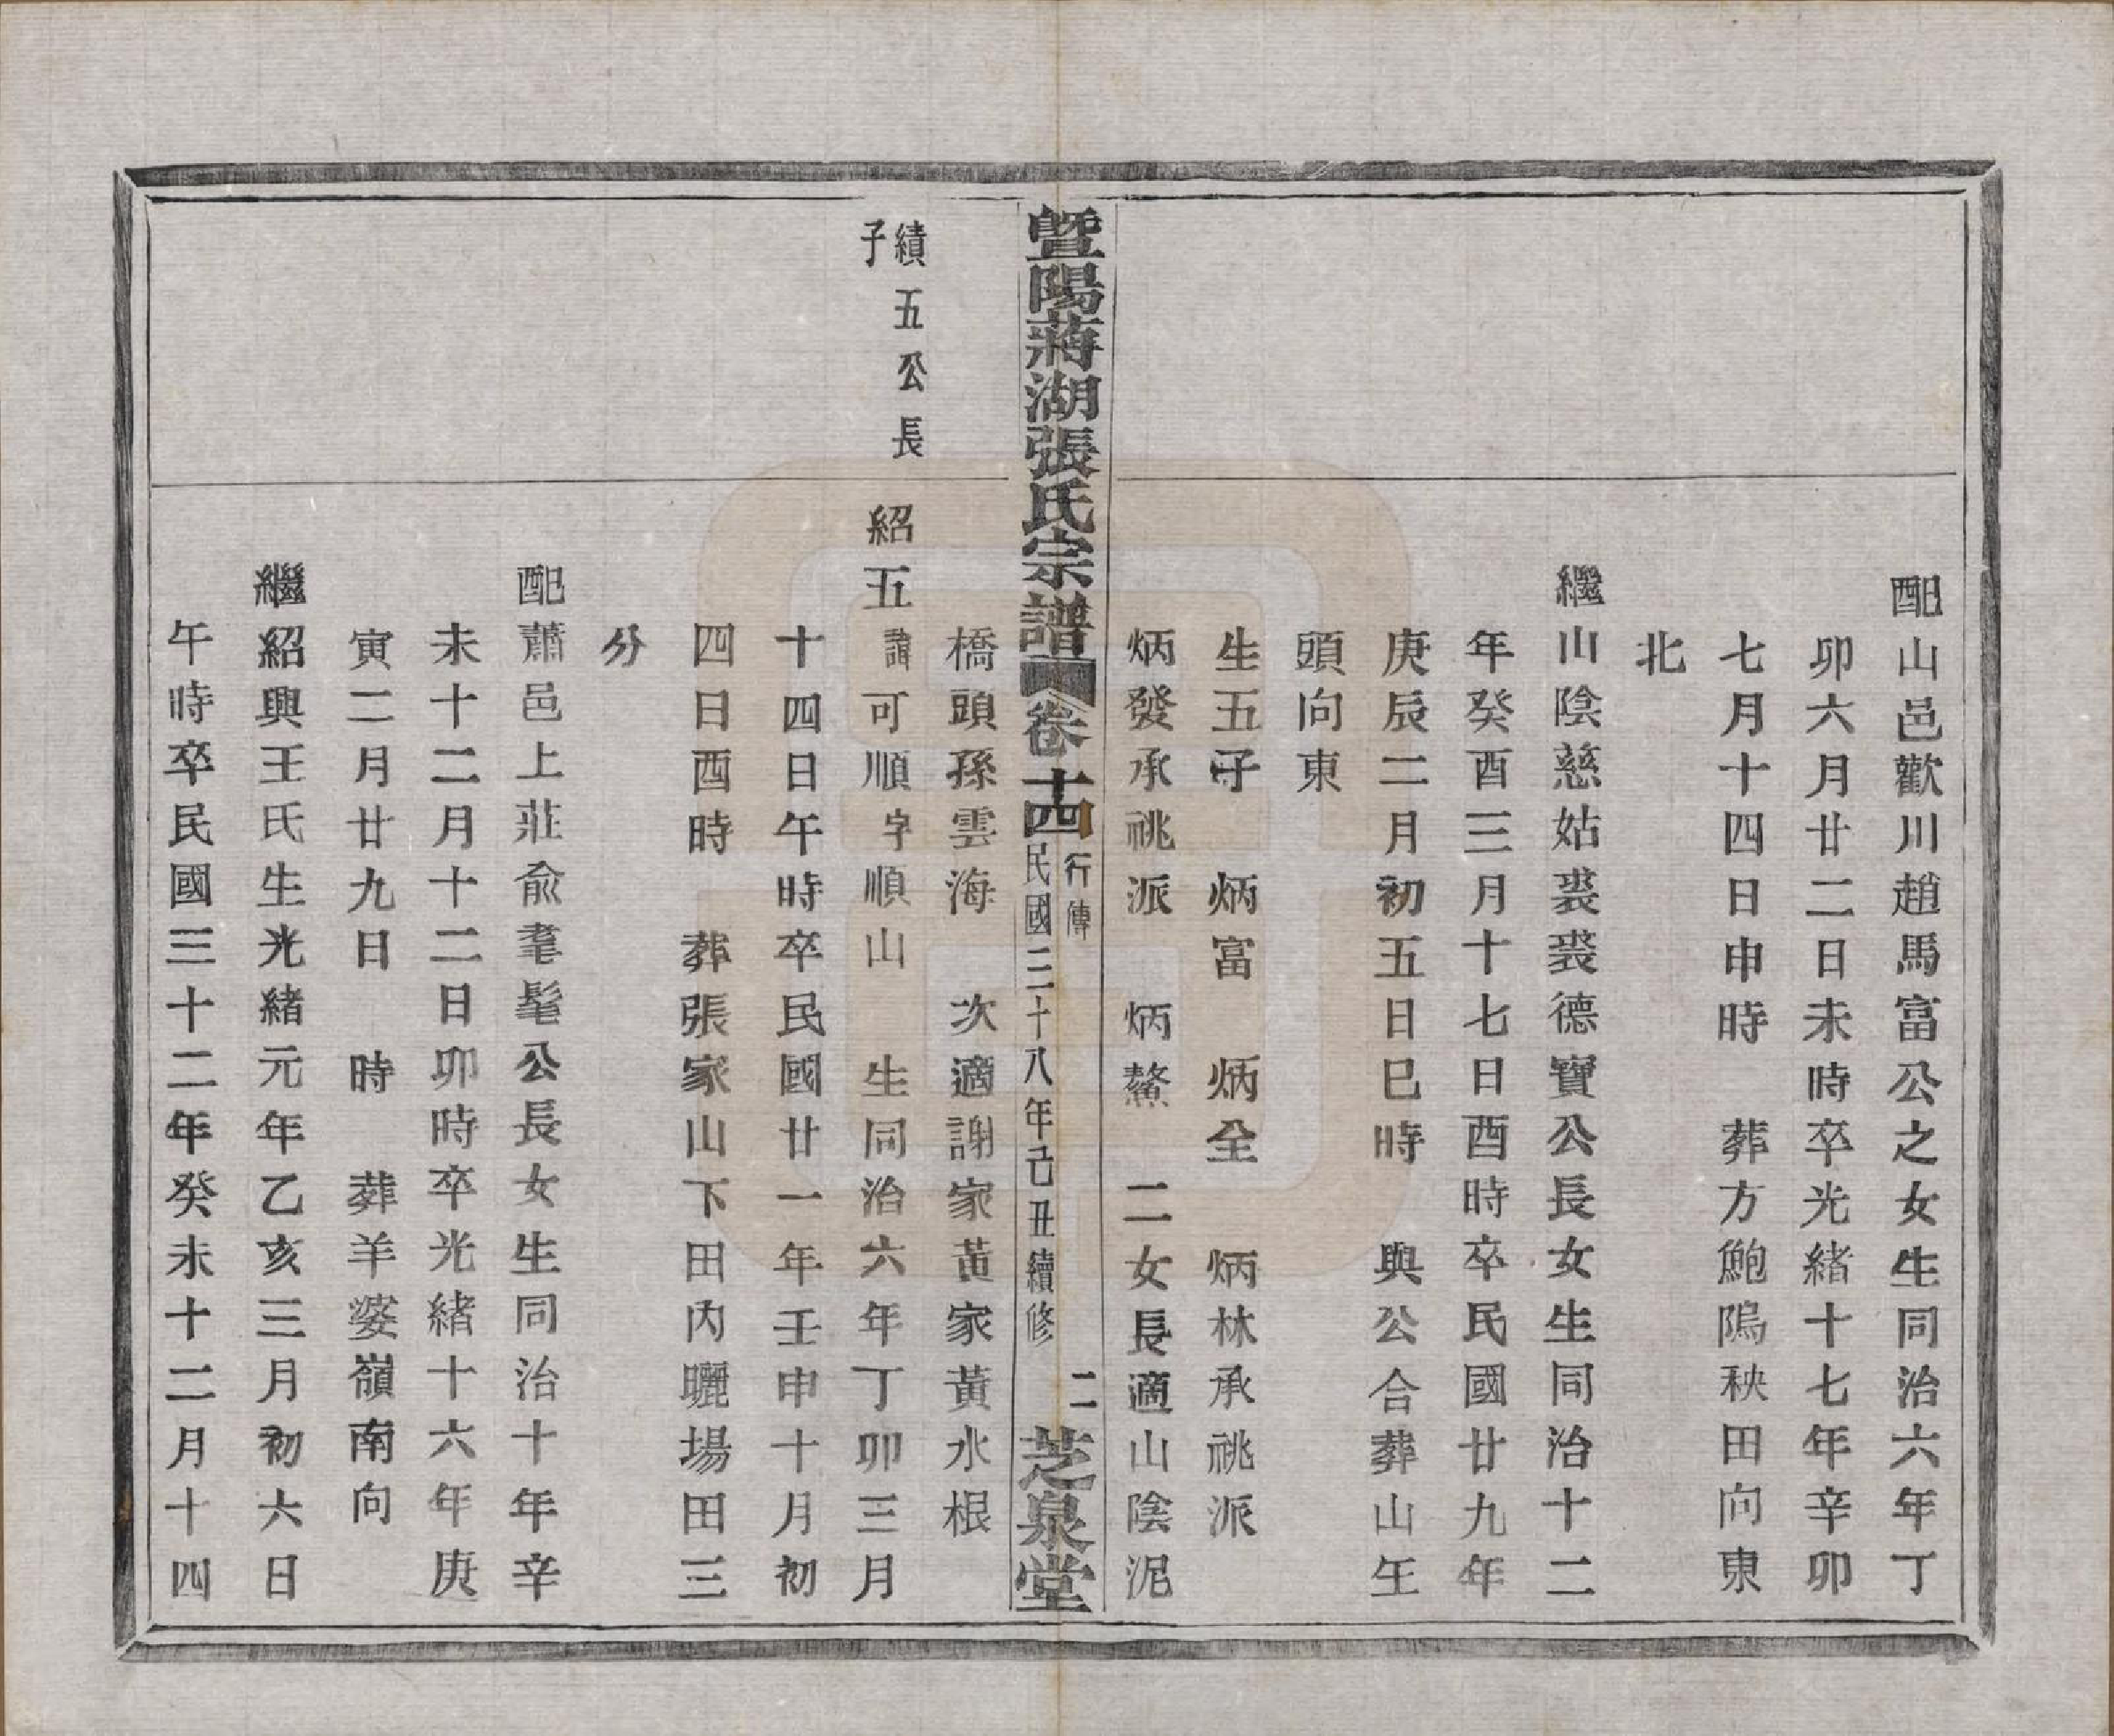 配山邑歡川趙馬富公之女生同治六年丁
卯六月廿二日未時卒光緒十七年辛卯
七月十四日申時　葬方鮑隖秧田向東
北
繼山陰慈姑裘裘德寶公長女生同治十二
年癸酉三月十七日酉時卒民國廿九年
庚辰二月初五日巳時　與公合葬山圶
頭向東
生五子　炳富　炳全　炳林承祧派
炳發承祧派　炳鰲　二女長適山陰泥
暨陽蔣湖張氏宗譜　卷十四　行傳　民國三十八年己丑續修　二　芝泉堂
橋頭孫雲海　次適謝家黃家黃水根
績五公長子
紹五諱可順字順山　生同治六年丁卯三月
十四日午時卒民國廿一年壬申十月初
四日酉時　葬張家山下田內曬場田三
分
配蕭邑上莊俞耄髦公長女生同治十年辛
未十二月十二日卯時卒光緒十六年庚
寅二月廿九日　時　葬羊婆嶺南向
繼紹興王氏生光緒元年乙亥三月初六日
午時卒民國三十二年癸未十二月十四